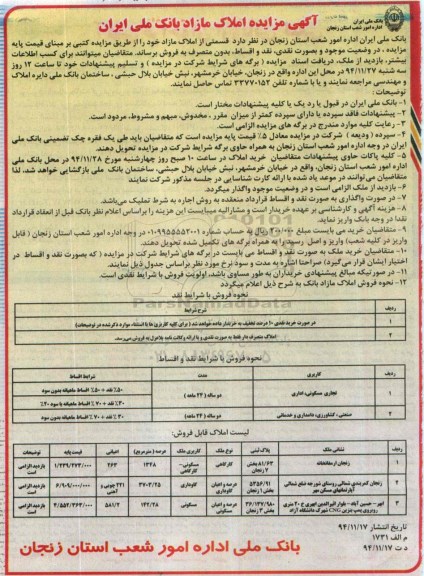 آگهی مزایده املاک مازاد بانک ملی ایران
بانک ملی ایران
اداره امور شعب استان زنجان
بانک ملی ایران اداره امور شعب استان زنجان در نظر دارد قسمتی از املاک مازاد خود را از طریق مزایده کتبی بر مبنای قیمت پایه
مزایده ، در وضعیت موجود و بصورت نقدی، نقد و اقساط، بدون متصرف به فروش برساند. متقاضیان میتوانند برای کسب اطلاعات
بیشتر، بازدید از ملک، دریافت اسناد مزایده ( برگه های شرایط شرکت در مزایده ) و تسلیم پیشنهادات خود تا ساعت ۱۲ روز
سه شنبه ۹۴/۱۱/۲۷ در محل این اداره واقع در زنجان، خیابان خرمشهر، نبش خیابان بلال حبشی ، ساختمان بانک ملی دایره املاک
و مهندسی مراجعه نمایند و یا با شماره تلفن ۳۳۷۷۰۱۵۲ تماس حاصل نمایند.
توضیحات :
۱- بانک ملی ایران در قبول یا رد یک یا کلیه پیشنهادات مختار است.
۲- پیشنهادات فاقد سپرده یا دارای سپرده کمتر از میزان مقرر ، مخدوش، مبهم و مشروط، مردود است.
۳- رعایت کلیه موارد مندرج در برگه های مزایده الزامی است.
۴- سپرده ( ودیعه ) شرکت در مزایده معادل ۵٪ قیمت پایه مزایده است که متقاضیان باید طی یک فقره چک تضمینی بانک ملی
ایران در وجه اداره امور شعب استان زنجان به همراه حاوی برگه شرایط شرکت در مزایده تحویل دهند.
۵- کلیه پاکات حاوی پیشنهادات متقاضیان خرید املاک در ساعت ۱۰ صبح روز چهارشنبه مورخ ۹۴/۱۱/۲۸ در محل بانک ملی
اداره امور شعب استان زنجان، واقع در خیابان خرمشهر، نبش خیابان بلال حبشی، ساختمان بانک ملی بازگشایی خواهد شد، لذا
متقاضیان می توانند در موعد یاد شده با ارائه کارت شناسایی در جلسه مذکور شرکت نمایند
۶- بازدید از ملک الزامی است و در وضعیت موجود واگذار میگردد.
۷- در صورت واگذاری به صورت نقد و اقساط قرارداد منعقده به روش اجاره به شرط تملیک می‌باشد.
۸- هزینه آگهی و کارشناسی بر عهده خریدار است و مشارالیه میبایست این هزینه را براساس اعلام نظر بانک قبل از انعقاد قرارداد
نقدا در وجه بانک واریز نماید.
۹- متقاضیان خرید می بایست مبلغ ۲۰۰/۰۰۰ ریال به حساب شماره در وجه اداره امور شعب استان زنجان ( قابل
واریز در کلیه شعب) واریز و اصل رسید را به همراه برگه های تکمیل شده تحویل دهند.
۱۰- متقاضیان خرید ملک به صورت نقد و اقساط می بایست در برگه های شرایط شرکت در مزایده ( که بصورت نقد و اقساط در
اختیار ایشان قرار می‌گیرد) صراحتا اشاره به مدت و سود نرخ مورد نظر براساس جدول ذیل نمایند.
۱۱- در صورتیکه مبالغ پیشنهادی خریداران به طور مساوی باشد، اولویت فروش با شرایط نقدی است.
۱۲- نحوه فروش املاک مازاد بانک به شرح ذیل اعلام میگردد
نحوه فروش با شرایط نقد
ردیف شرح شرایط
۱ در صورت خرید نقدی ۱۰ درصد تخفیف به خریدار داده خواهد شد
۲
نحوه فروش با شرایط نقد و اقساط
ردیف کاربری مدت شرایط اقساط
۱ تجاری مسکونی، اداری دو ساله (۲۴ ماهه) ۵۰٪ نقد + ۵۰٪ اقساط ماهیانه بدون سود
۲ صنعتی، کشاورزی، دامداری و خدماتی دو ساله (۲۴ ماهه) ۳۰٪ نقد + ۷۰٪ اقساط ماهیانه بدون سود
لیست املاک قابل فروش:
ردیف نشانی ملک پلاک ثبتی نوع ملک کاربری ملک عرصه (مترمربع) اعیانی قیمت پایه توضیحات
۱ زنجان ارمغانخانه ۸۱/۶۳ بخش ۷ زنجان کارگاهی مسکونی-کارگاهی ۱۳۲۸ ۲۶۳ ۱/۲۳۹/۲۷۳/۰۰۰ بازدید الزامی است
۲ زنجان کمربندی شمالی روستای شورجه ضلع شمالی آپارتمانهای مسکن مهر ۵۳۵۶/۹۱ بخش ۱ زنجان عرصه و اعیان گاوداری گاوداری ۳۷۰۳/۲۵ ۶/۹۰۹/۰۰۰/۰۰۰ بازدید الزامی است
۳ ابهر - حسین آباد - روبروی پمپ بنزین CNG شهرک دانشگاه آزاد ۳۶/۱۴۷/۹۸۰ بخش ۳ زنجان عرصه و اعیان مسکونی مسکونی ۱۴۲/۲۸ ۵۸۱/۲ ۴/۵۵۲/۳۶۳/۰۰۰ بازدید الزامی است
تاریخ انتشار ۹۴/۱۱/۱۷
م الف ۱۷۳۱
د ت ۹۴/۱۱/۱۷
بانک ملی اداره امور شعب استان زنجان
ParsNamadData